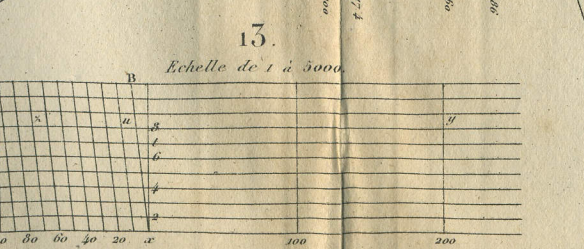 13.
Echelle de 1 à 5000.
B
x u 8 y
t
6
4
2
80 60 40 20 x 100 200